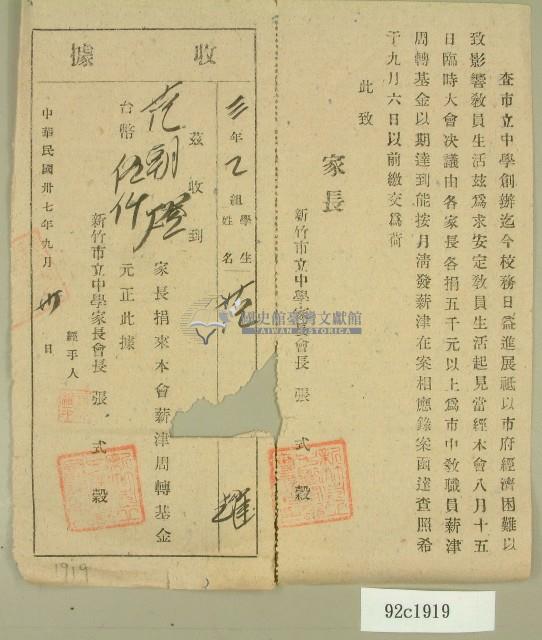 查市立中學創辦迄今校務日益進展祗以市府經濟困難以
致影響教員生活茲爲求安定教員生活起見當經本會八月十五
日臨時大會決議由各家長各捐五千元以上爲市中教職員薪津
周轉基金以期達到能按月淸發薪津在案相應錄案函達查照希
于九月六日以前繳交爲荷
此致
家長
新竹市立中學家長會長 張 式 穀
收據
三年乙組學生姓名 范 耀
茲收到
范朝燈 家長捐來本會薪津周轉基金
台幣伍仟 元正此據
新竹市立中學家長會長 張 式 穀
經手人
中華民國卅七年九月 日
國史館臺灣文獻館
TAIWAN HISTORICA
1919
92c1919